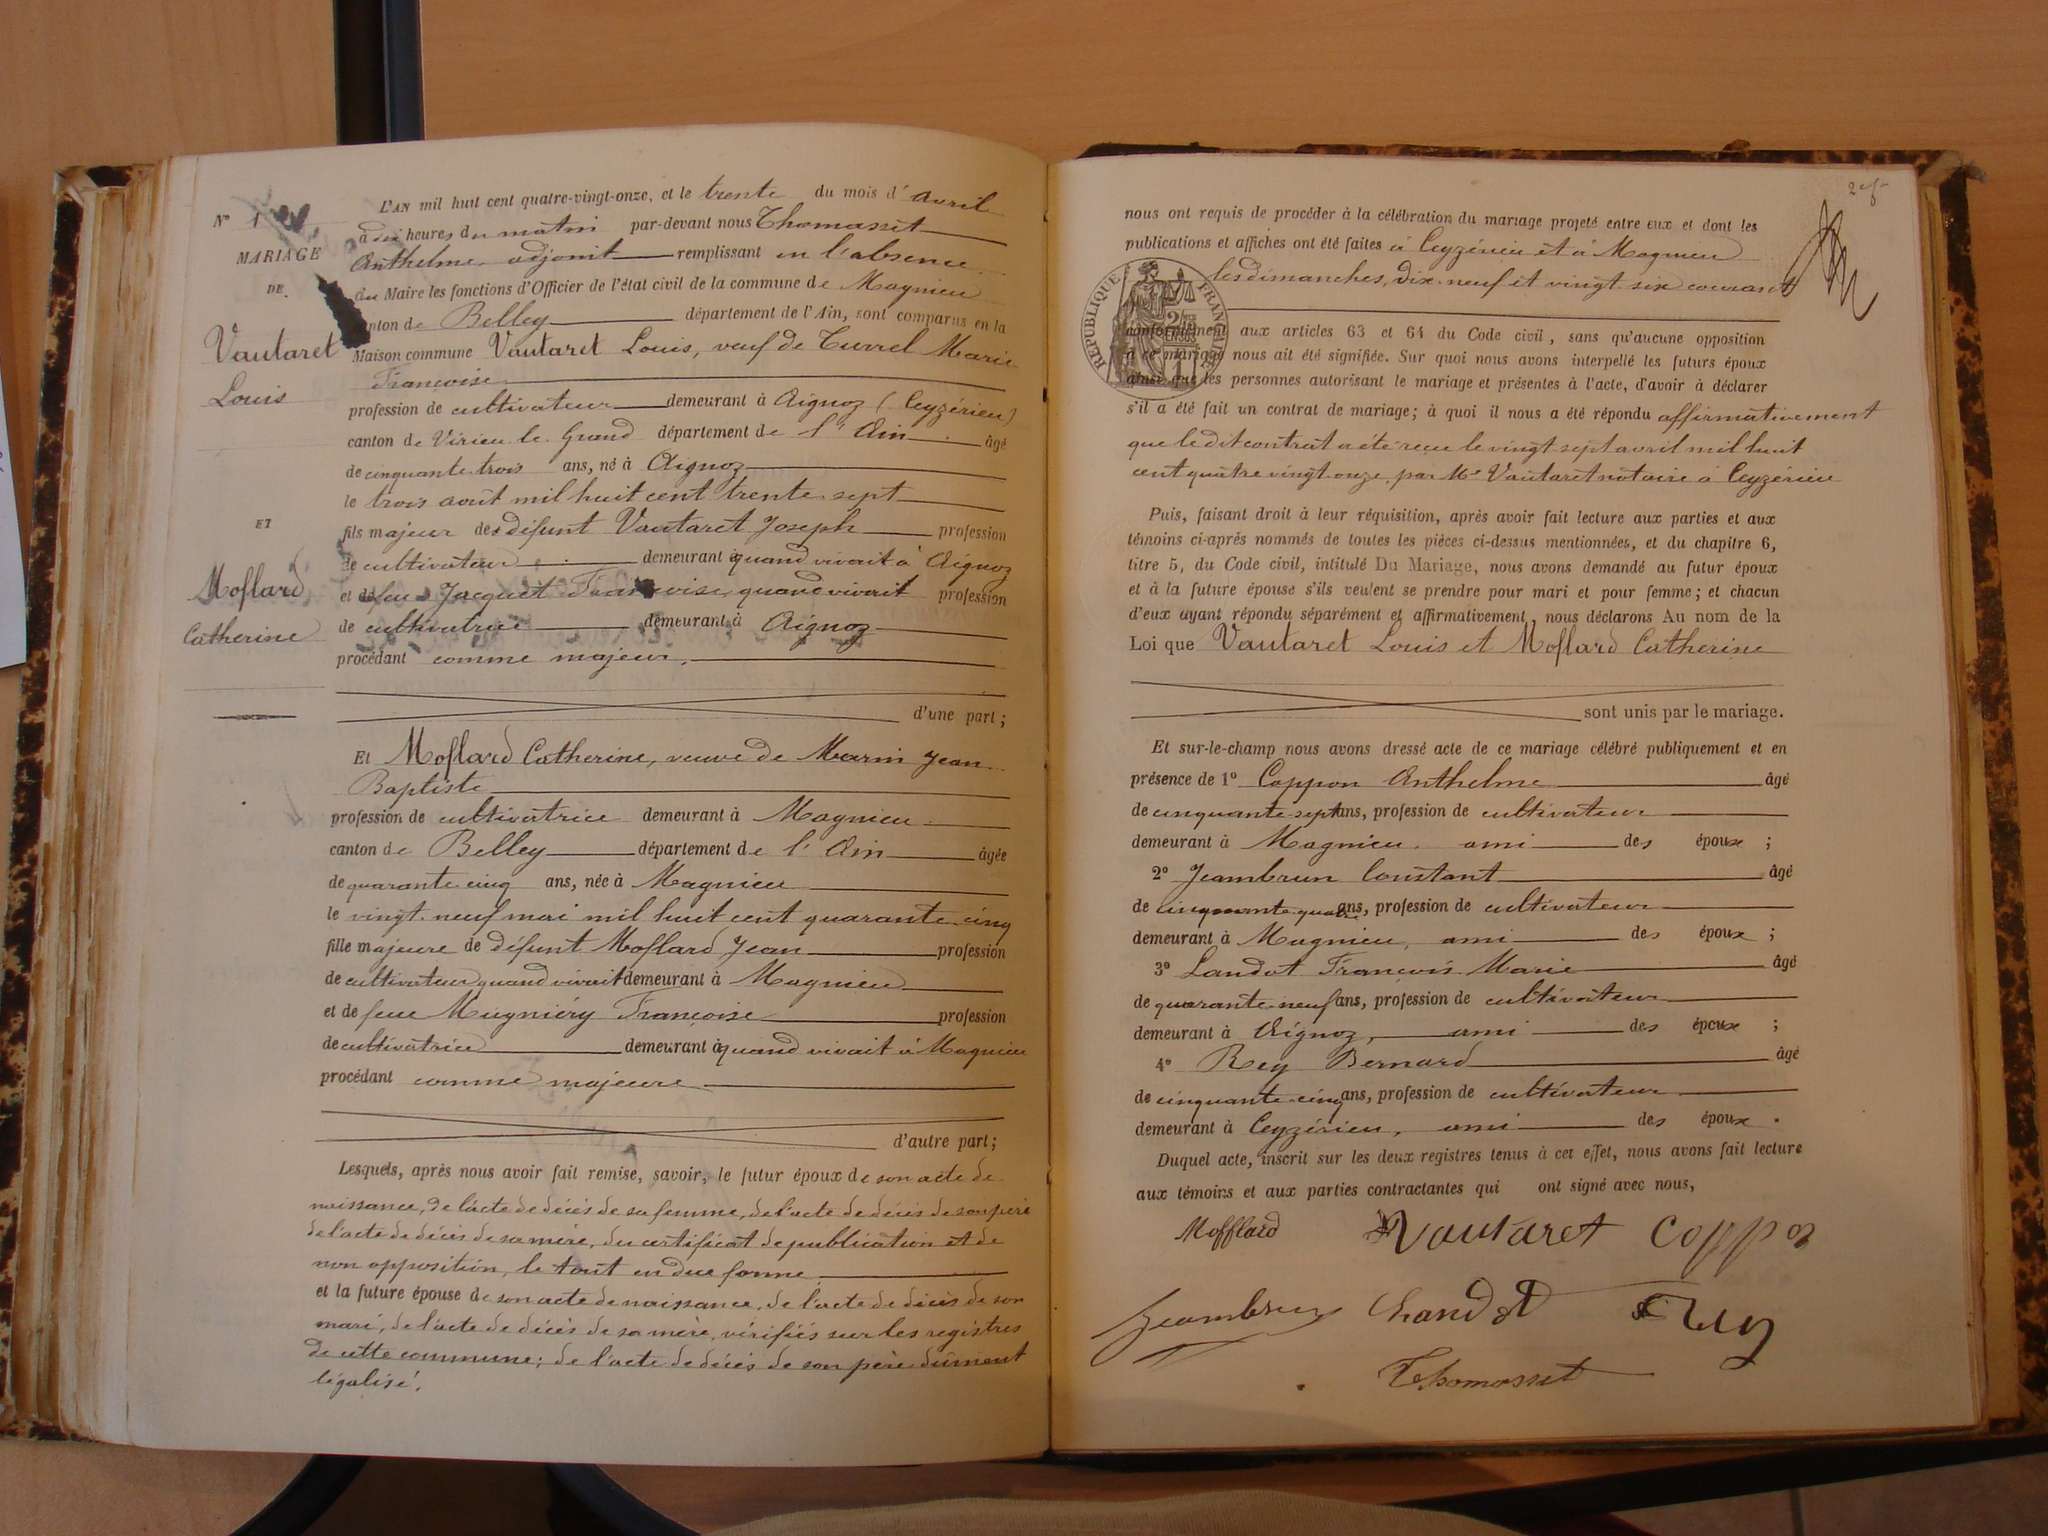 N° 1
MARIAGE
DE
Vautaret
Louis
ET
Moflard
Catherine
L'AN mil huit cent quatre-vingt-onze, et le trente du mois d'avril
à dix heures du matin par-devant nous Thomasset
Anthelme adjoint remplissant en l'absence
du Maire les fonctions d'Officier de l'état civil de la commune de Magnieu
canton de Belley département de l'Ain, sont comparus en la
Maison commune Vautaret Louis, veuf de Turrel Marie
Françoise
profession de cultivateur demeurant à Aignoz (Ceyzérieu)
canton de Virieu le Grand département de l'Ain âgé
de cinquante trois ans, né à Aignoz
le trois août mil huit cent trente sept
fils majeur de défunt Vautaret Joseph profession
de cultivateur demeurant quand vivait à Aignoz
et de feu Jacquet Françoise quand vivait profession
de cultivatrice demeurant à Aignoz
procédant comme majeur.
d'une part;
Et Moflard Catherine, veuve de Marin Jean
Baptiste
profession de cultivatrice demeurant à Magnieu
canton de Belley département de l'Ain âgée
de quarante cinq ans, née à Magnieu
le vingt-neuf mai mil huit cent quarante-cinq
fille majeure de défunt Moflard Jean profession
de cultivateur quand vivait demeurant à Magnieu
et de feue Mugniéry Françoise profession
de cultivatrice demeurant à quand vivait à Magnieu
procédant comme majeure
d'autre part;
Lesquels, après nous avoir fait remise, savoir, le futur époux de son acte de
naissance, de l'acte de décès de sa femme, de l'acte de décès de son père
de l'acte de décès de sa mère, du certificat de publication et de
non opposition, le tout en due forme
et la future épouse de son acte de naissance, de l'acte de décès de son
mari, de l'acte de décès de sa mère, vérifiés sur les registres
de cette commune; de l'acte de décès de son père dûment
légalisé.
nous ont requis de procéder à la célébration du mariage projeté entre eux et dont les
publications et affiches ont été faites à Ceyzérieu et à Magnieu
les dimanches, dix-neuf et vingt six courant
RÉPUBLIQUE FRANÇAISE
conformément aux articles 63 et 64 du Code civil, sans qu'aucune opposition
à ce mariage nous ait été signifiée. Sur quoi nous avons interpellé les futurs époux
ainsi que les personnes autorisant le mariage et présentes à l'acte, d'avoir à déclarer
s'il a été fait un contrat de mariage; à quoi il nous a été répondu affirmativement
que le dit contrat a été reçu le vingt sept avril mil huit
cent quatre vingt onze par Me Vautaret notaire à Ceyzérieu
Puis, faisant droit à leur réquisition, après avoir fait lecture aux parties et aux
témoins ci-après nommés de toutes les pièces ci-dessus mentionnées, et du chapitre 6,
titre 5, du Code civil, intitulé Du Mariage, nous avons demandé au futur époux
et à la future épouse s'ils veulent se prendre pour mari et pour femme; et chacun
d'eux ayant répondu séparément et affirmativement, nous déclarons Au nom de la
Loi que Vautaret Louis et Moflard Catherine
sont unis par le mariage.
Et sur-le-champ nous avons dressé acte de ce mariage célébré publiquement et en
présence de 1° Coppon Anthelme âgé
de cinquante-sept ans, profession de cultivateur
demeurant à Magnieu ami des époux;
2° Jeambrun Constant âgé
de cinquante quatre ans, profession de cultivateur
demeurant à Magnieu, ami des époux;
3° Landot François Marie âgé
de quarante-neuf ans, profession de cultivateur
demeurant à Aignoz, ami des époux;
4° Rey Bernard âgé
de cinquante-cinq ans, profession de cultivateur
demeurant à Ceyzérieu, ami des époux.
Duquel acte, inscrit sur les deux registres tenus à cet effet, nous avons fait lecture
aux témoins et aux parties contractantes qui ont signé avec nous,
Mofflard Vautaret Coppon
Jeambrun Landot Rey
Thomasset